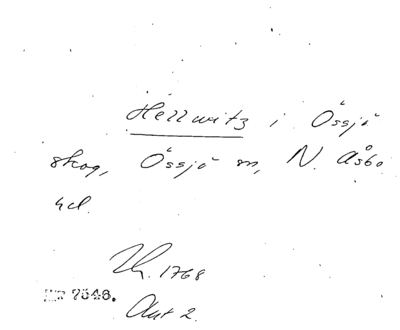 Herrwitz i Össjö
skog, Össjö sn, N. Åsbo
hd.
1768
7348.
Akt 2.